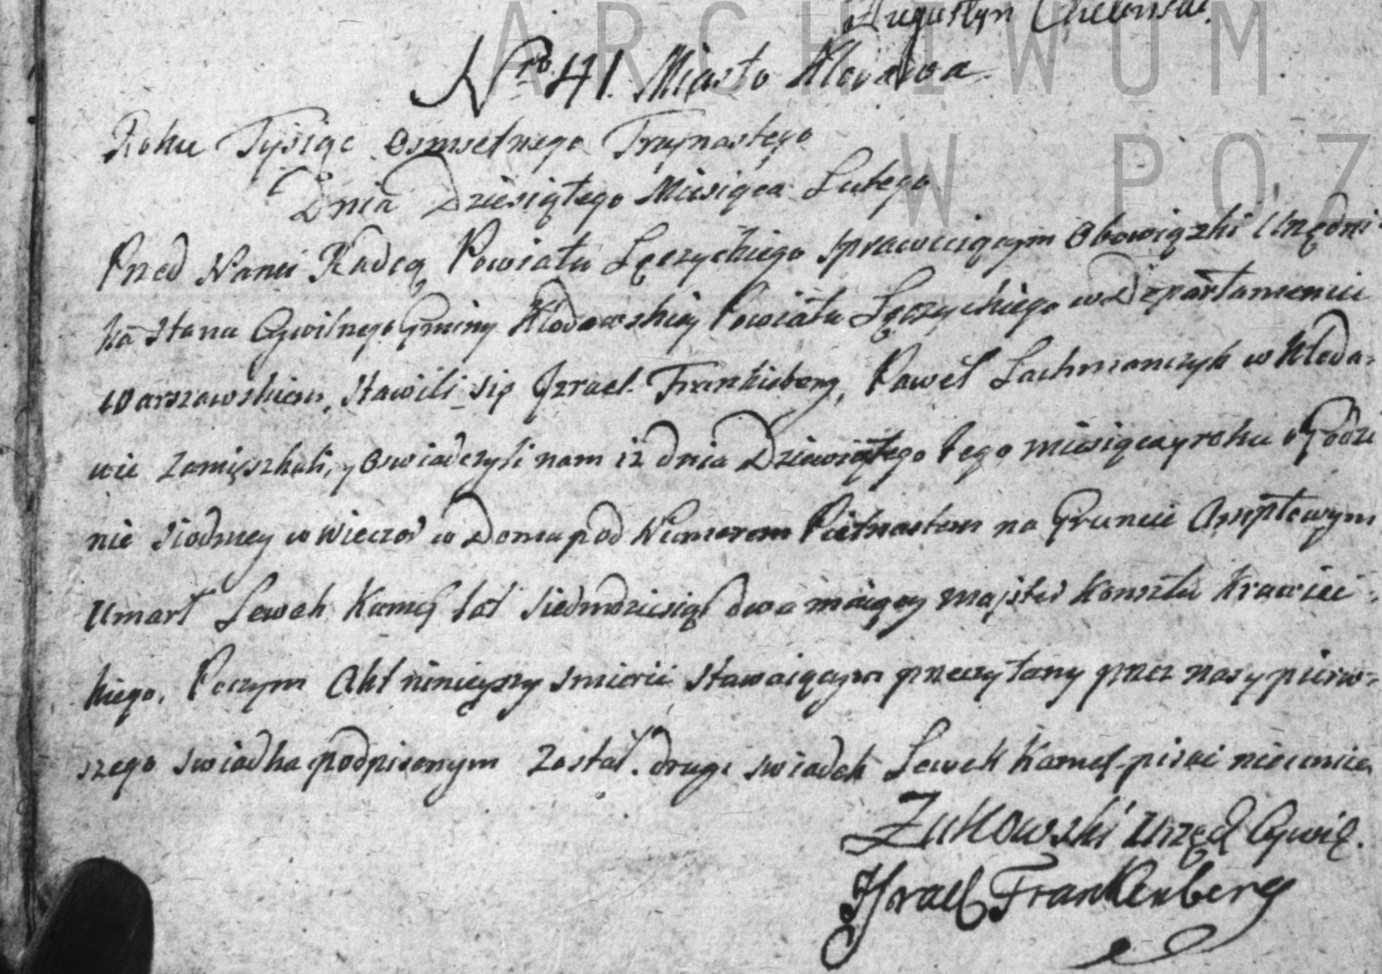 Augustyn Chelmski
Nro. 41. Miasto Klodawa
Roku Tysiąc Osmsetnego Trzynastego
Dnia Dziesiątego Miesiąca Lutego
Przed Nami Radcą Powiatu Łęczyckiego sprawuiącym Obowiązki Urzędni
ka Stanu Cywilnego Gminy Kłodawskiey Powiatu Łęczyckiego w Departamencie
Warszawskiem, stawili się Izrael Frankieberg, Paweł Lachmanczyk w Kłoda-
wie zamięszkali, y oswiadczyli nam iż dnia Dziewiątego tego miesiąca y roku o Godzi
nie siodmey w wieczor w Domu pod Numerem Pietnastem na Gruncie
Umarł Lewek Kamel lat siedmdziesiąt dwa maiący majster Konsztu Krawiec-
kiego. Poczym Akt ninieyszy smierci stawaiącym przeczytany przez nas y pierw-
szego swiadka podpisanym został. drugi swiadek Lewek Kamel pisac nieumie.
Zukowski Urzęd Cywil.
Israel Frankenberg
ARCHIWUM
W POZ